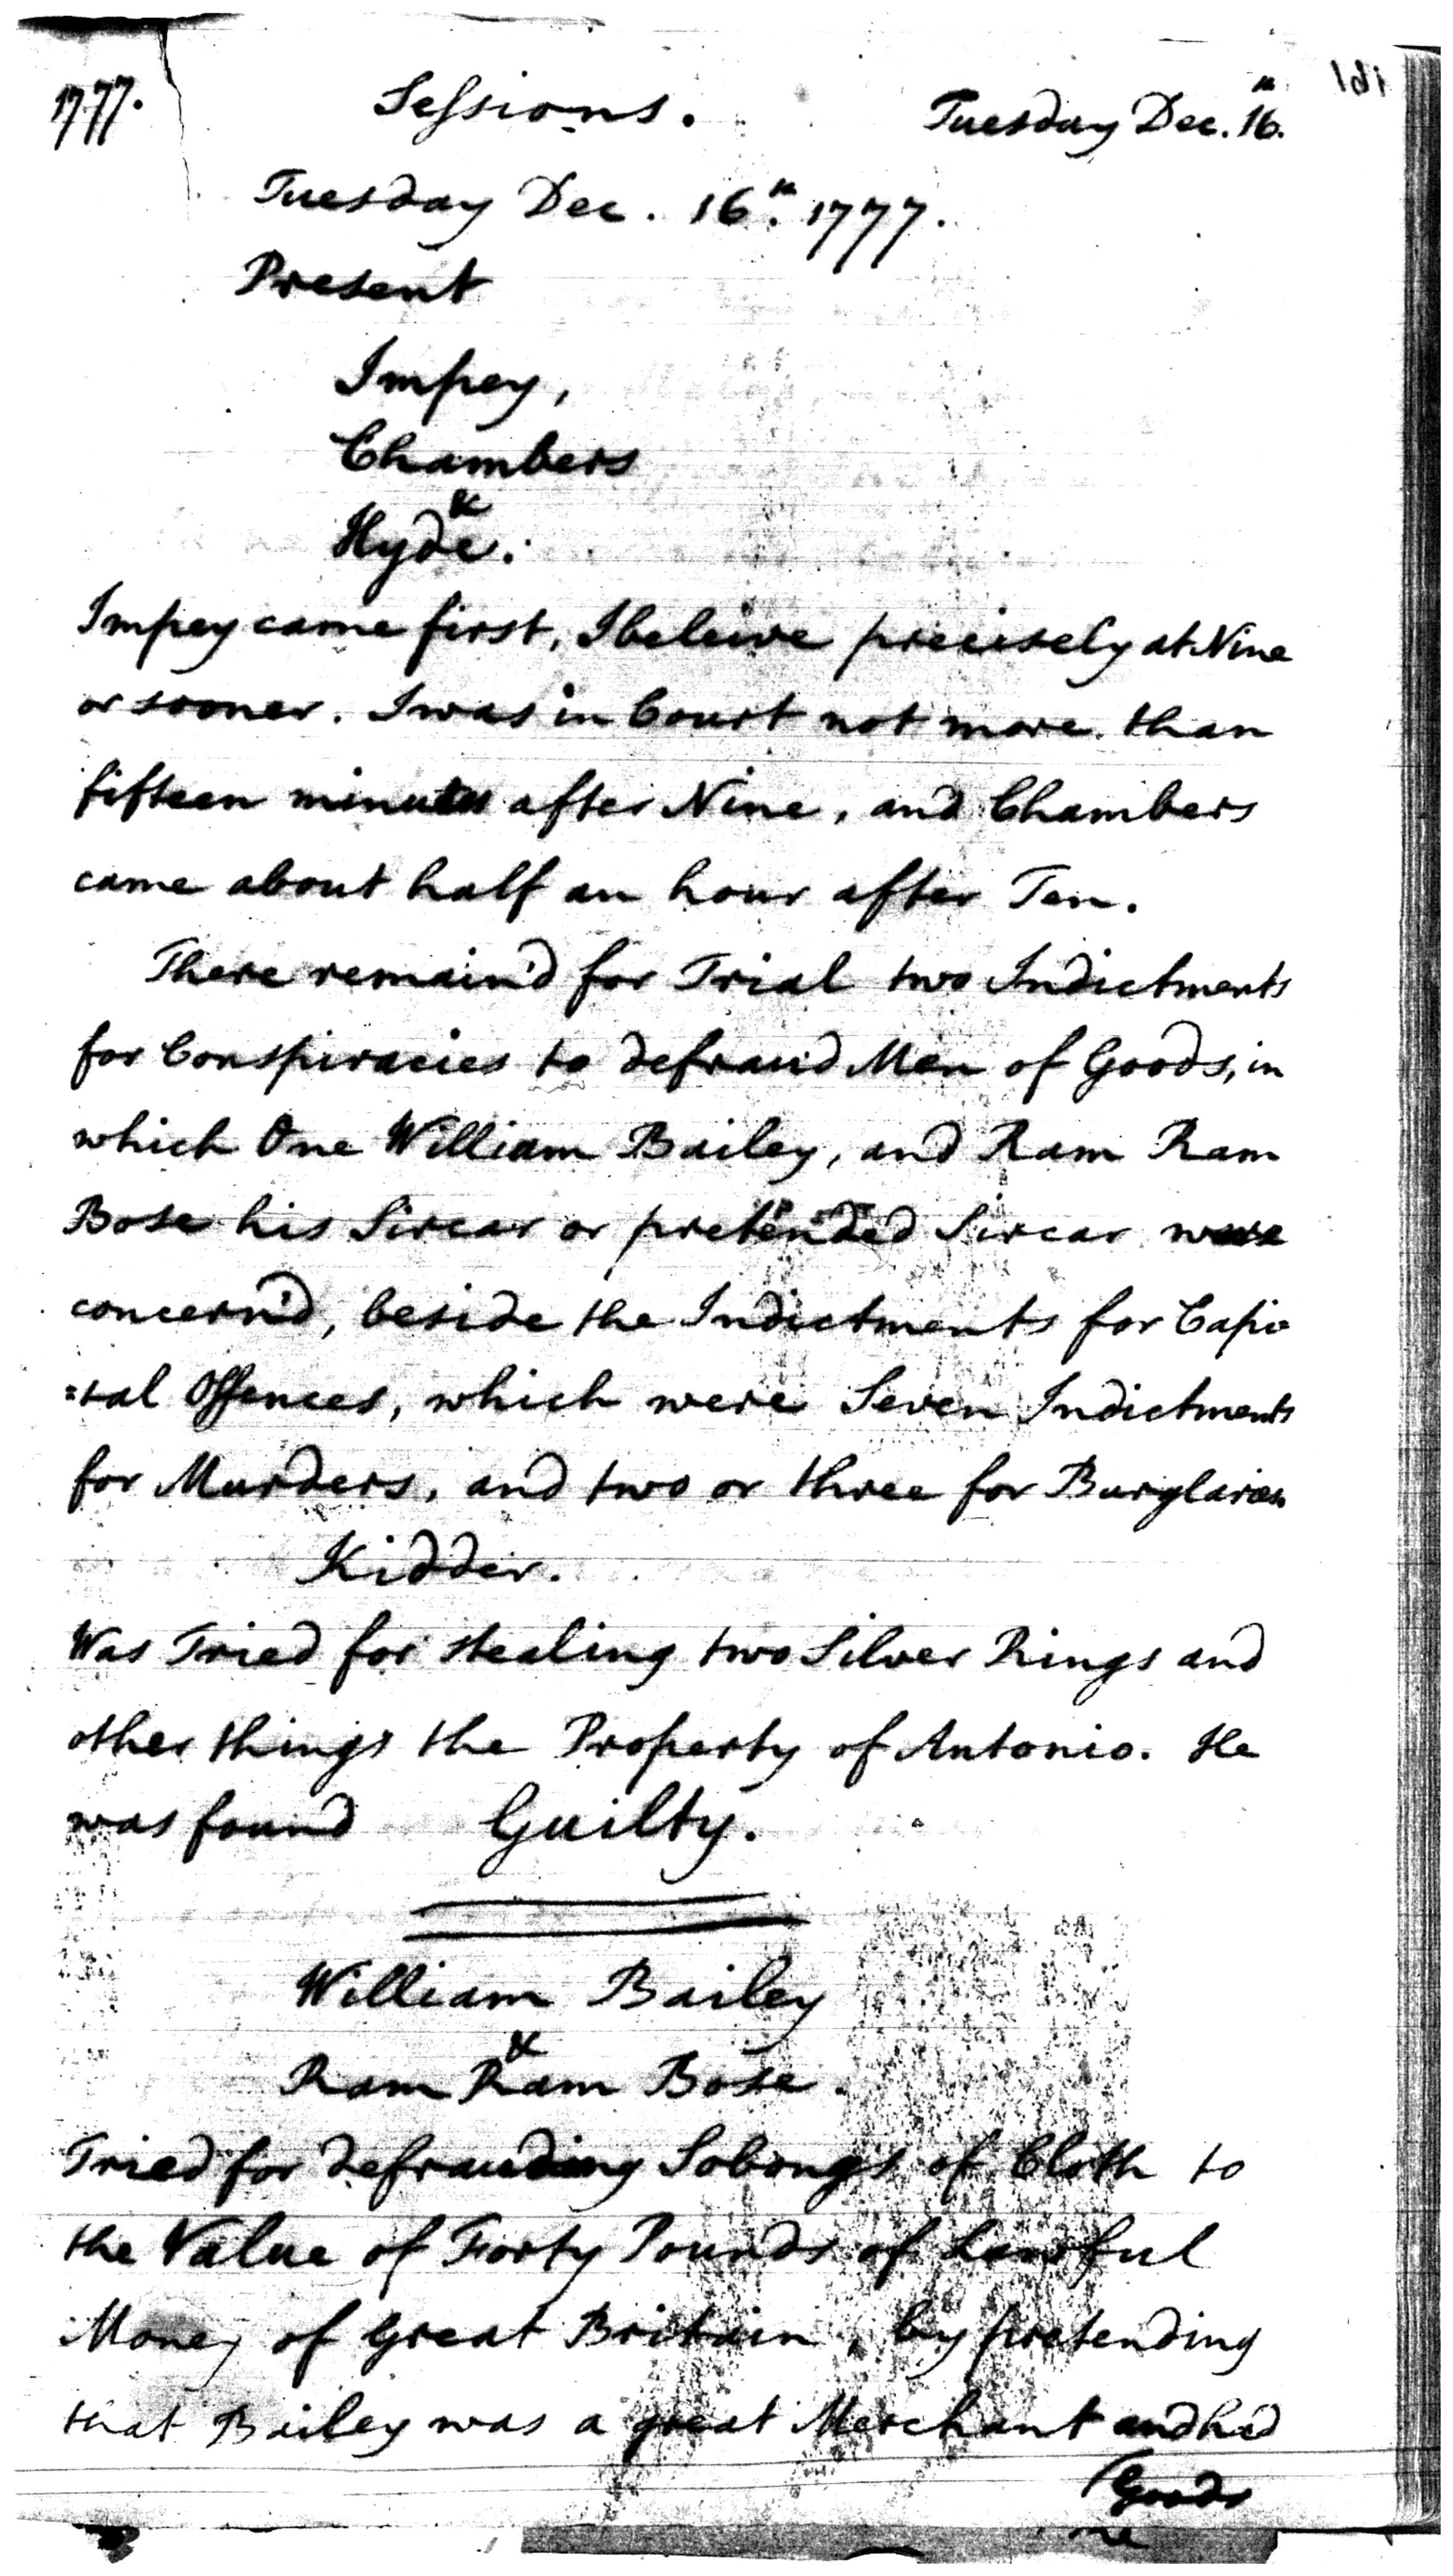 1777. Sessions. Tuesday Dec. 16th.
Tuesday Dec. 16th. 1777.
Present
Impey,
Chambers
&
Hyde.
Impey came first, I beleive precisely at Nine
or sooner. I was in Court not more than
fifteen minutes after Nine, and Chambers
came about half an hour after Ten.
There remain'd for Trial two Indictments
for Conspiracies to defraud Men of Goods, in
which One William Bailey, and Ram Ram
Bose his Sircar or pretended Sircar were
concern'd, beside the Indictments for Capi
=tal Offences, which were Seven Indictments
for Murders, and two or three for Burglaries
Kidder.
Was Tried for stealing two Silver Rings and
other things the Property of Antonio. He
was found Guilty.
William Bailey
&
Ram Ram Bose.
Tried for defrauding of Cloth to
the Value of Forty Pounds of Lawful
Money of Great Britain, by pretending
that Bailey was a great Merchant and had
(Goods